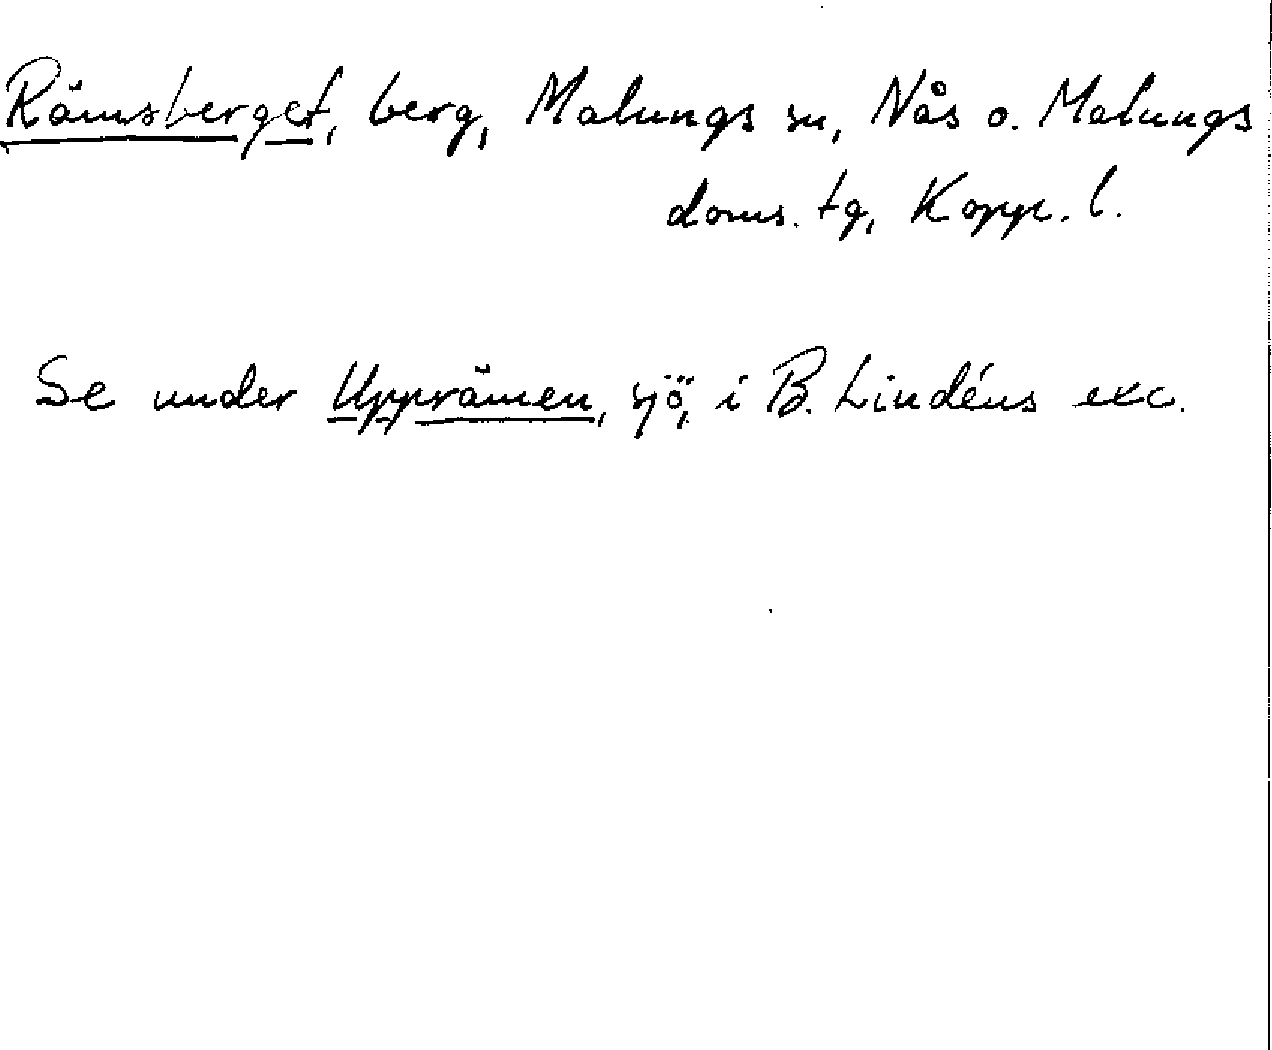 Rämsberget, berg, Malungs sn, Nås o. Malungs
doms. tg, Kopp. l.
Se under Upprämen, sjö, i B. Lindéns exc.